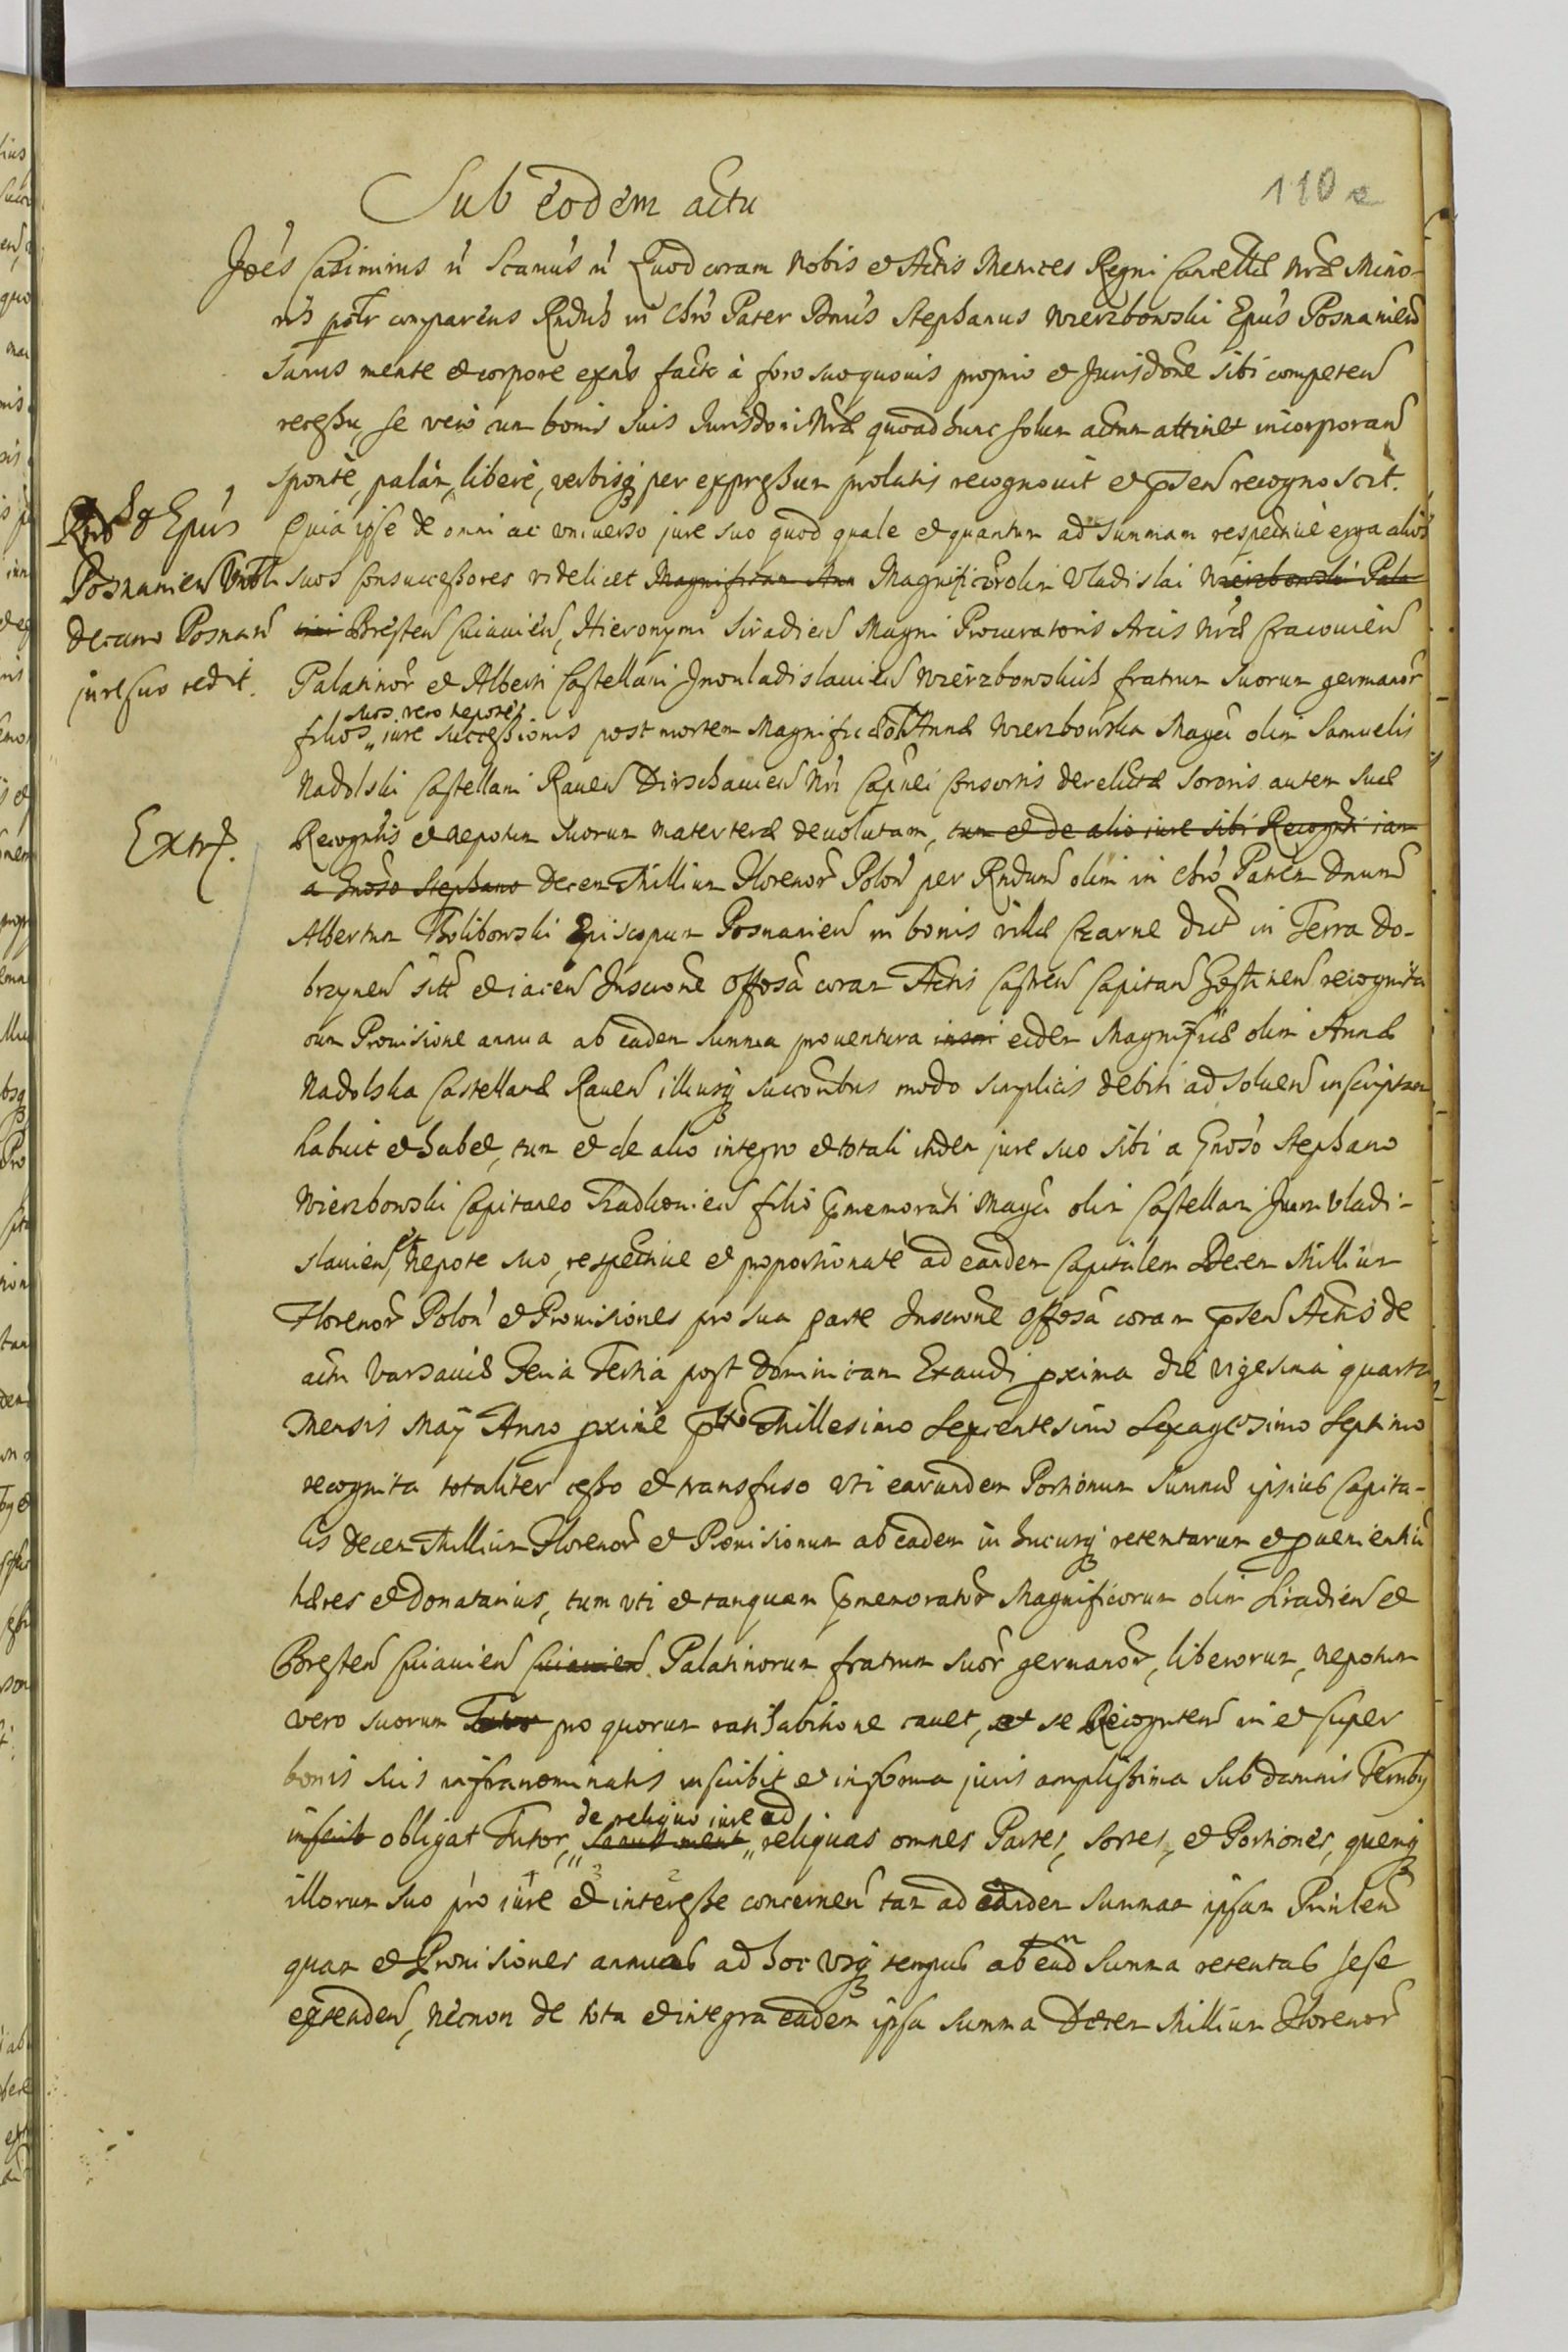 110
Sub eodem actu
Joes Casimirus n Scamus n Quod coram Nobis et Actis Metrices Regni Cancellæ Nræ Mino-
ris psltr comparens Rndus in Chro Pater Dnus Stephanus Wierzbowski Epus Posnanien
sanus mente et corpore exns facto à foro suo quovis proprio et Jurisdone sibi competen
recessu, se vero cum bonis suis Jurisdoni Nræ quoad hunc solum actum attinet incorporan
sponte, palam, libere, verbisq per expressum prolatis recognovit et psen recognoscit.
Rndus Epus
Posnanien
Decano Posnan
jure suo cedit.
Quia ipse de omni ac universo jure suo quod quale et quantum ad summam respective erga alios
suos Consuccessores videlicet Magnificam Ann Magnificor olim Vladislai Wierzbowski Pala
tini Bresten Cuiavien, Hieronymi Siradien Magni Procuratoris Arcis Nræ Cracovien
Palatinor et Alberti Castellani Junivladislavien Wierzbowskich fratrum suorum germanor
suos vero nepotes
filios " iure successionis post mortem Magnificæ olim Annæ Wierzbowska Magci olim Samuelis
Nadolski Castellani Raven Dirschavien Nri Capnei Consortis derelictæ sororis autem suæ
Extr.
Recogntis et nepotum suorum materteræ devolutam, tum et de alio iure sibi Recognti iam
a Gnoso Stephano Decem Millium Florenor Polon per Rndum olim in Chro Patrem Dnum
Albertum Tholibowski Episcopum Posnanien in bonis villæ Czarne dict in Terra Do-
brzynen sitt et iacen Inscrone Offosa coram Actis Castren Capitan Gostinen recognita
cum Provisione annua ab eadem summa proventura inscri eidem Magnificæ olim Annæ
Nadolska Castellanæ Raven illiusq succoribus modo simplicis debiti ad solven inscriptam
habuit et habet, tum et de alio integro et totali itidem jure suo sibi a Gnoso Stephano
Wierzbowski Capitaneo filio pmemorati Magci olim Castellani Junivladi-
slavien, Nepote suo, respective et proportionate ad eandem Capitalem Decem Millium
Florenor Polon et Provisiones pro sua parte Inscrone Offosa coram psen Actis de
actu Varsaviæ Feria Tertia post Dominicam Exaudi pxima die vigesima quarta
Mensis Maij Anno pxime ptto Millesimo Sexcentesimo Sexagesimo Septimo
recognita totaliter cesso et transfuso uti earundem Portionum Summæ ipsius Capita-
lis Decem Millium Florenor et Provisionum ab eadem in hucusq retentarum et pvenientiu
hæres et donatarius, tum uti et tanquam pmemorator Magnificorum olim Siradien et
Bresten Cuiavien Cuiavien Palatinorum fratrum suor germanor, liberorum, nepotum
vero suorum Tutor pro quorum ratihabitione cavet, et se Recognten in et super
bonis suis infranominatis inscribit et in forma juris amplissima sub damnis Terrbq
de reliquo iure ad
inscrib obligat Tutor, " " reliquas omnes Partes, sortes, et Portiones, quemq
illorum suo pro iure et interesse concernen tam ad eandem summam ipsam Prinlem
quam et Provisiones annuas ad hoc usq tempus ab ead Summa retentas sese
extenden, necnon de tota et integra eadem ipsa summa Decem Millium Florenor